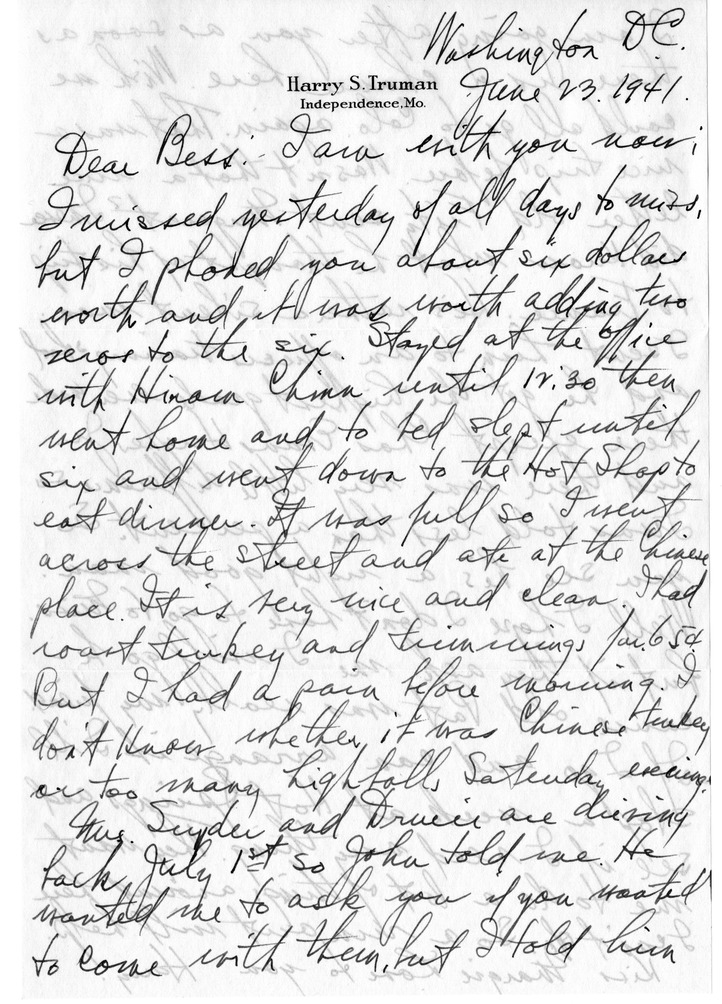 Washington D.C.
Harry S. Truman
Independence, Mo.
June 23, 1941.
Dear Bess:- I am with you now;
I missed yesterday of all days to miss,
but I phoned you about six dollars
worth and it was worth adding two
zeros to the six. Stayed at the office
with Hiram until 12:30 then
went home and to bed slept until
six and went down to the Hot Shop to
eat dinner. It was full so I went
across the street and ate at the Chinese
place. It is very nice and clean. I had
roast turkey and trimmings for 65¢.
But I had a pain before morning. I
don't know whether it was Chinese turkey
or too many highballs Saturday evening.
Mrs. Snyder and Drucie are driving
back July 1st so John told me. He
wanted me to ask you if you wanted
to come with them, but I told him